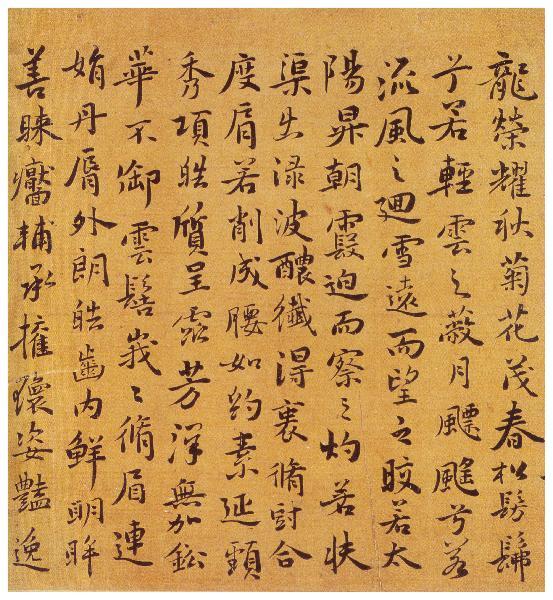 龍榮耀秋菊花茂春松髣髴
兮若輕雲之蔽月飄颻兮若
流風之廻雪遠而望之皎若太
陽昇朝霞迫而察之灼若扶
渠出淥波醲纖得衷脩短合
度肩若削成腰如約素延頸
秀項皓質呈露芳澤無加鉛
華不御雲髻峩々脩眉連
娟丹脣外朗皓齒内鮮明眸
善睞靨輔承權瓌姿豔逸